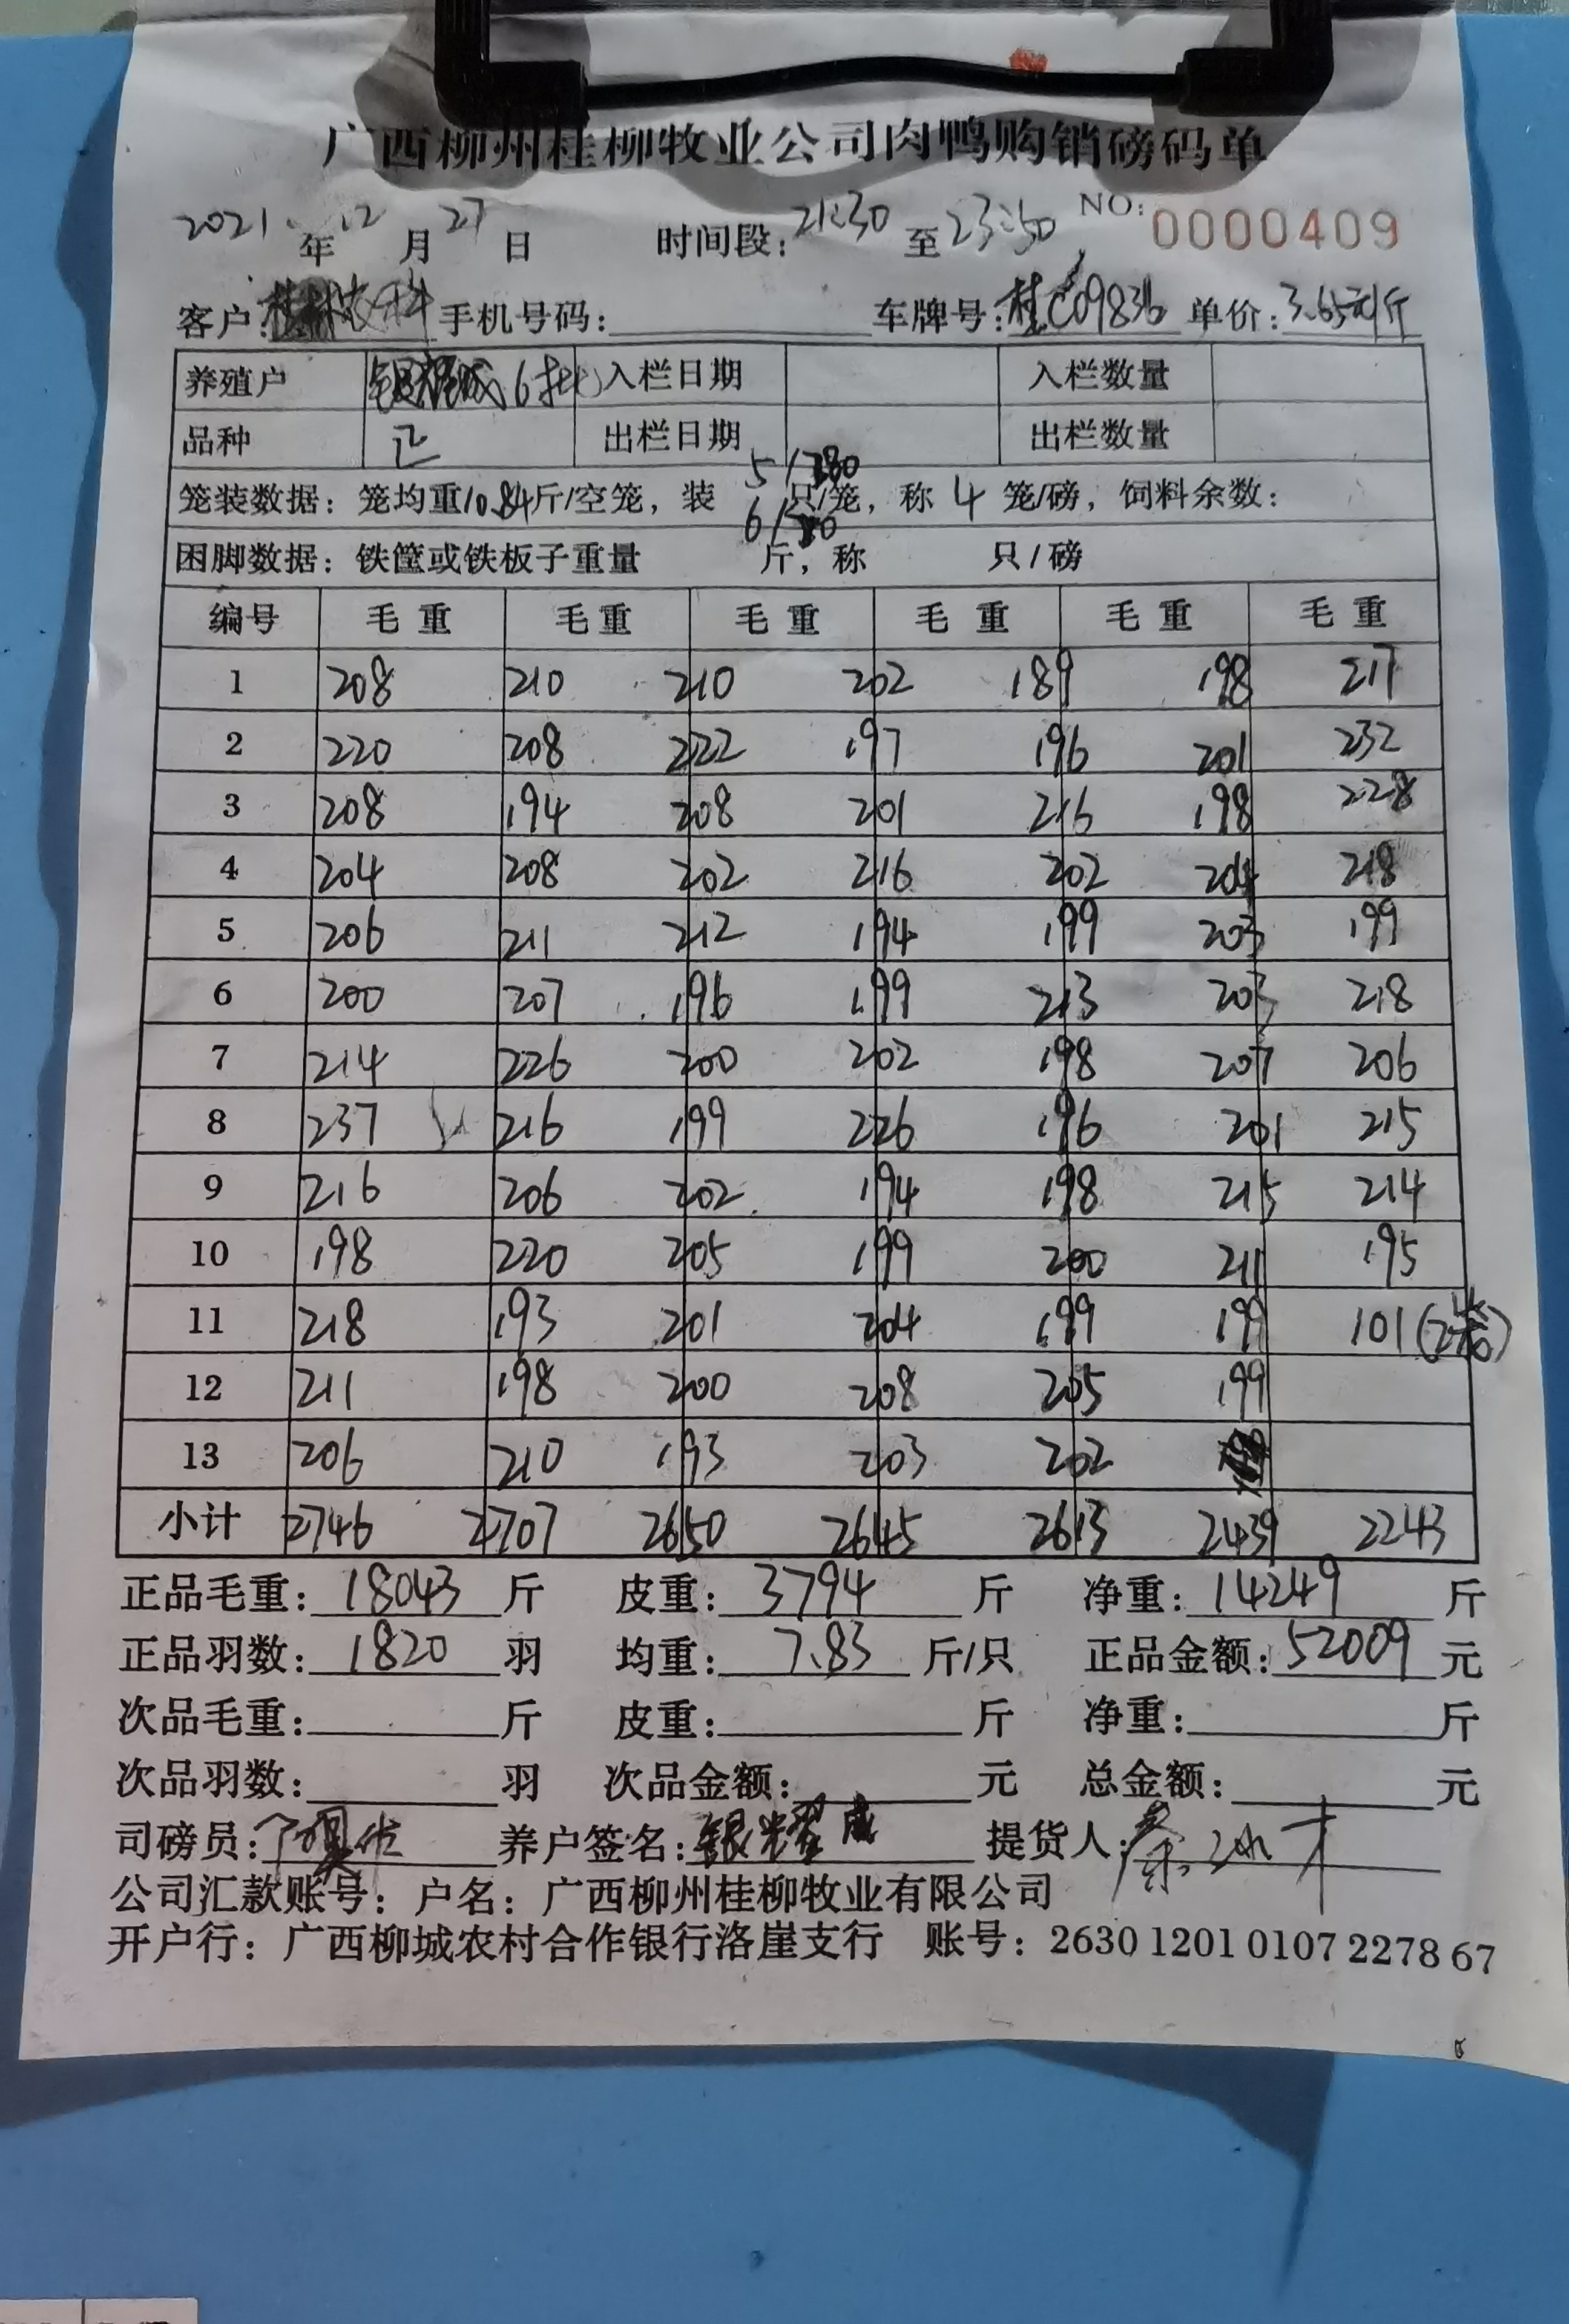 广西柳州桂柳牧业公司肉鸭购销磅码单
2021年12月27日 时间段:21:30至23:50 NO:0000409
客户: 手机号码: 车牌号:桂C09836 单价:3.65元/斤
养殖户 入栏日期 入栏数量
品种 正 出栏日期 出栏数量
笼装数据:笼均重10.84斤/空笼,装 5/ 6/ 只/笼,称4笼/磅,饲料余数:
困脚数据:铁筐或铁板子重量 斤,称 只/磅
编号 毛重 毛重 毛重 毛重 毛重 毛重
1 208 210 210 202 189 198 217
2 220 208 222 197 196 201 232
3 208 194 208 201 216 198 228
4 204 208 202 216 202 204 218
5 206 211 212 194 199 203 199
6 200 207 196 199 213 203 218
7 214 226 200 202 198 207 206
8 237 216 199 226 196 201 215
9 216 206 202 194 198 215 214
10 198 220 205 199 200 211 195
11 218 193 201 204 199 199 101(2笼)
12 211 198 200 208 205 199
13 206 210 193 203 202
小计 2746 2707 2650 2645 2613 2439 2243
正品毛重:18043斤 皮重:3794斤 净重:14249斤
正品羽数:1820羽 均重:7.83斤/只 正品金额:52009元
次品毛重: 斤 皮重: 斤 净重: 斤
次品羽数: 羽 次品金额: 元 总金额: 元
司磅员: 养户签名:银耀成 提货人:
公司汇款账号:户名:广西柳州桂柳牧业有限公司
开户行:广西柳城农村合作银行洛崖支行 账号:2630 1201 0107 2278 67